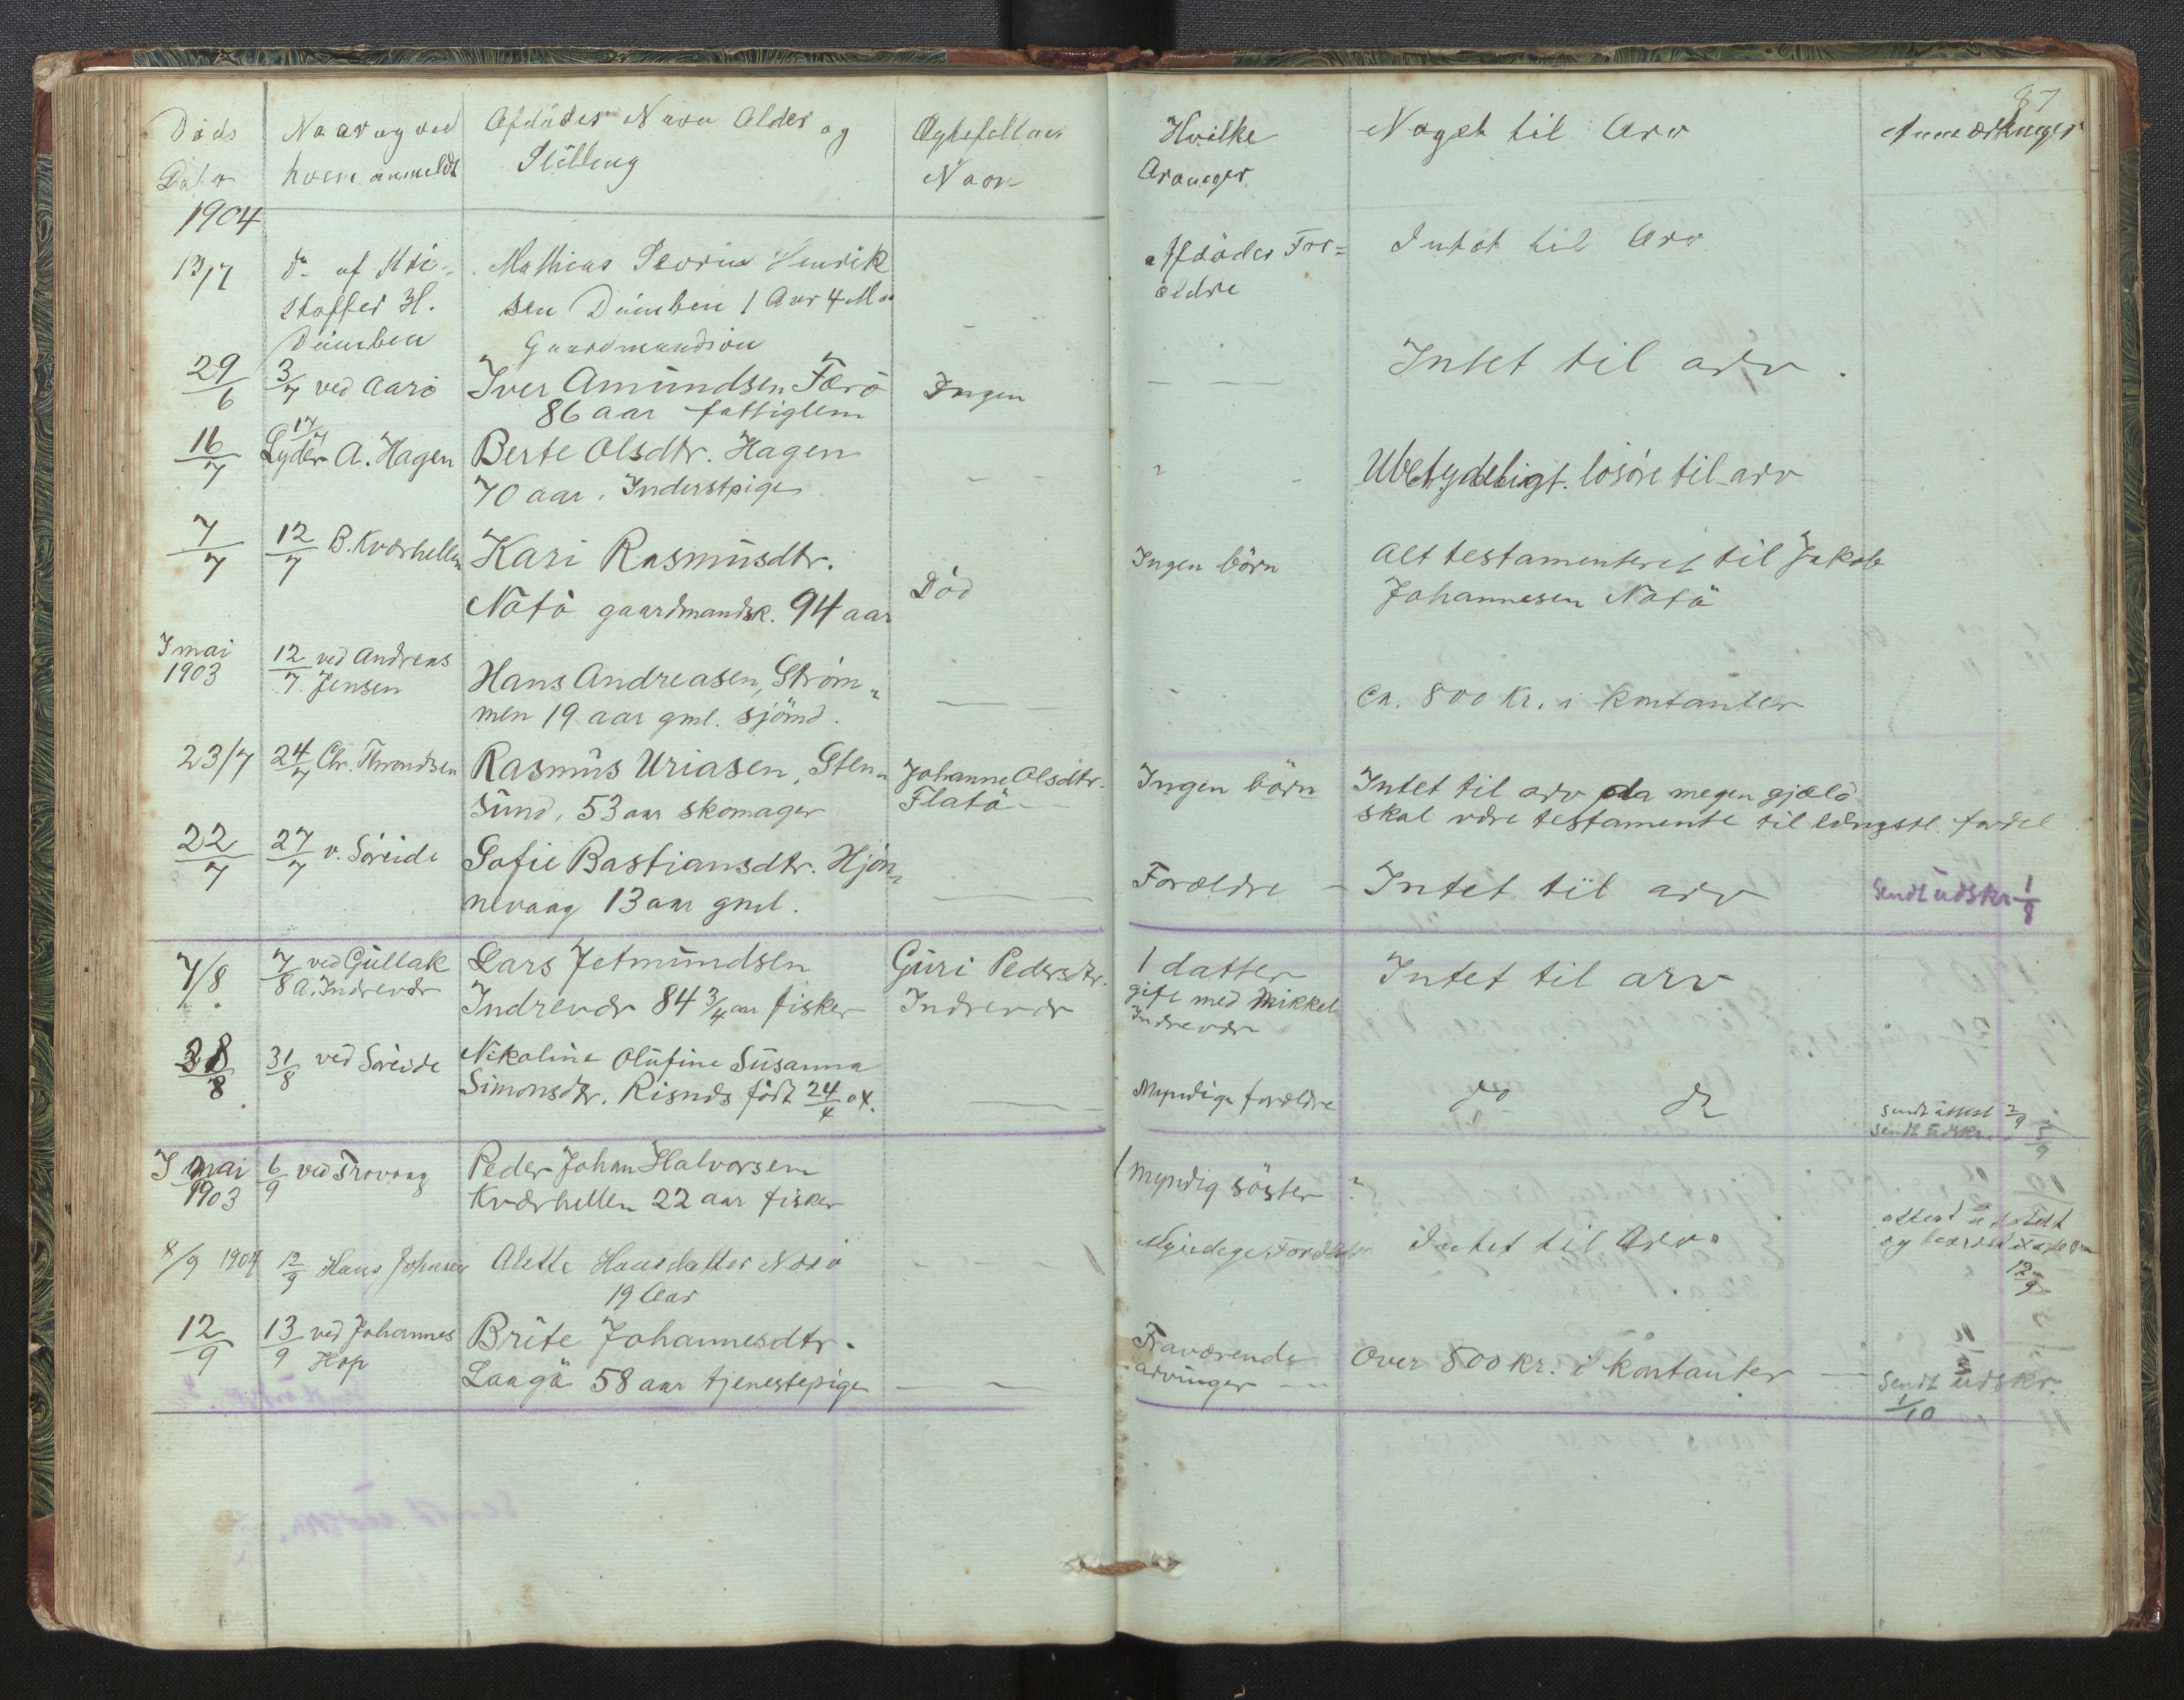 87
Döds
Dato
Naar og ved
hvem anmeldt
Afdödes Navn Alder og
Stilling
Ægtefælles
Navn
Hvilke
Arvinger
Noget til Arv
Anmærkninger
1904
13/7
do af Kri-
stoffer H.
Dümben
Mathias Severin Henrik
sen Dümben 1 Aar 4 Ma
Gaardmandsön
Afdödes For=
ældre
Intet til Arv
29/6
3/7 ved Aarö
Iver Amundsen Færö
86 aar fattiglem
Ingen
Intet til arv.
16/7
17/7
Lyder A. Hagen
Berte Olsdtr. Hagen
70 aar. Inderstpige
Ubetydeligt. lösöre til arv
7/7
12/7 B. Kværhellen
Kari Rasmusdtr.
Notö gaardmandsk. 94 aar
Död
Ingen börn
Alt testamenteret til Jakob
Johannesen Notö
I mai
1903
12/7 ved Andreas
Jensen
Hans Andreasen, Ström„
men 19 aar gml. sjömd.
Ca. 800 Kr. i kontanter
23/7
24/7 Chr. Throndsen
Rasmus Uriasen, Sten„
sund, 53 aar skomager
Johanne Olsdtr.
Flatö
Ingen börn
Intet til arv da megen gjæld
skal være testamente til længstl. fordel
22/7
27/7 v. Söreide
Sofie Bastiansdtr. Hjön„
nevaag 13 aar gml.
Forældre
Intet til arv
Sendt udskr 1/8
7/8
7/8 ved Gullak
A. Indrevær
Lars Jetmundsen
Indrevær 84 3/4 aar fisker
Guri Pedersdtr.
Indrevær
1 datter
gift med Mikkel
Indrevær
Intet til arv
28/8
31/8 ved Söreide
Nikoline Olufine Susanna
Simonsdtr. Risnes födt 24/4 04.
Myndige forældre
do do
Sendt attest 2/9
Sendt udskr.
I mai
1903
6/9 ved Trovaag
Peder Johan Halvorsen
Kværhellen 22 aar fisker
1 myndig söster ?
8/9 1904
12/9 Hans Johnsen
Alette Hansdatter Nösö
19 Aar
Myndige Forældre
Intet til Arv.
attest udstedt
12/9
12/9
13/9 ved Johannes
Hop
Brite Johannesdtr.
Laagö 58 aar tjenestepige
Fraværende
arvinger
Over 500 Kr. i kontanter
Sendt udskr.
1/10